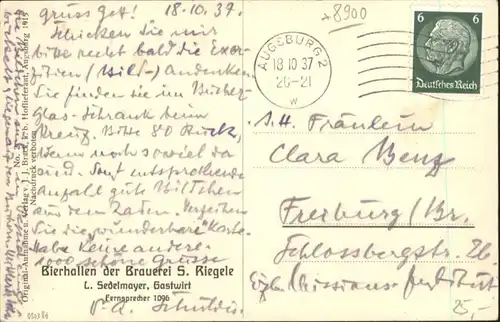 Grüss Gott! 18.10.37.
Schicken Sie mir
bitte recht bald die Exer-
zitien (Bild-) Andenken
Sie finden sie im Bücher-
Glas-Schrank beim
Kreuz. Bitte 80 Stück,
wenn noch soviel da
sind. Sonst entsprechende
Anzahl gute Bildchen
aus dem Laden. Verzeihen
Sie die wunderbare Karte.
Habe keine andere.
1000 schöne Grüsse
Bierhallen der Brauerei S. Riegele
L. Sedelmayer, Gastwirt
Fernsprecher 1096
P. A.
Original-Aufnahme u. Verlag v. J. J. Brack, k. b. Hoflieferant, Augsburg 1915
Nachdruck verboten
No.
8900
AUGSBURG 2
18 10 37
20-21
w
6 6
Deutsches Reich
Fräulein
Clara Benz
Freiburg/Br.
Schlossbergstr. 26
Missions-Institut
25,-